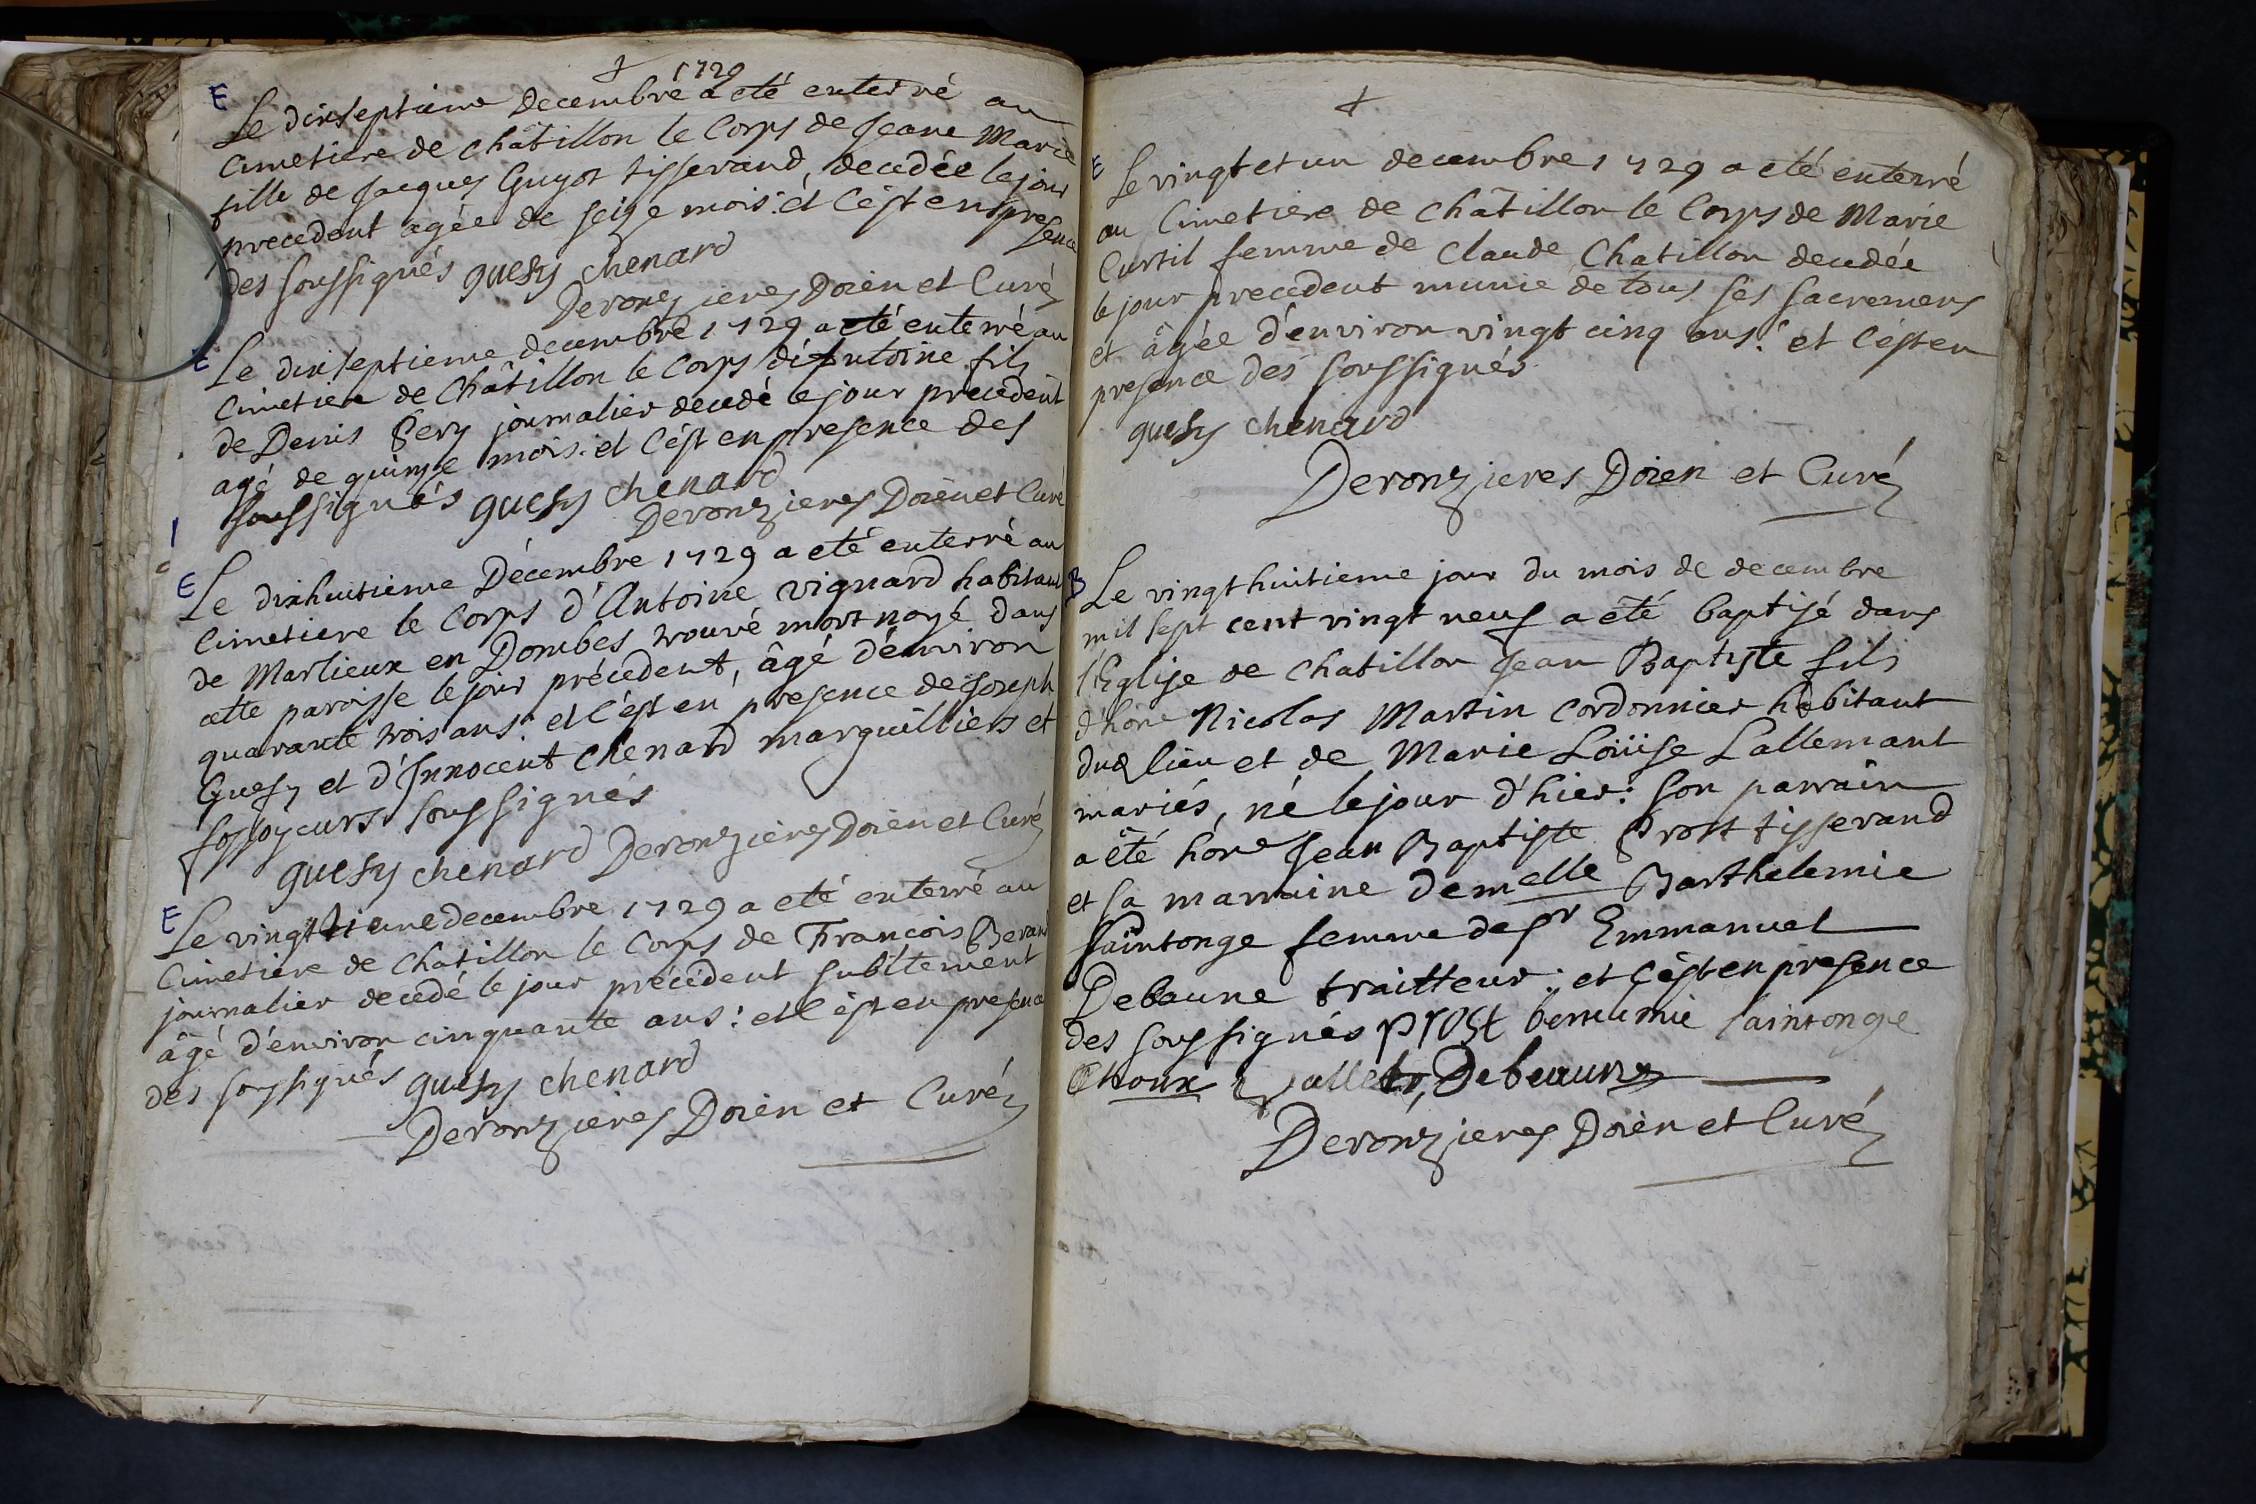 ✝ 1729
E Le dixseptieme Decembre a eté enterré au
Cimetiere de châtillon le Corps de Jeane Marie
fille de Jacques Guyot tisserand, decedée le jour
precedent agée de seize mois: et c'est en presence
des soussignés guesy chenard
Deronzieres Doien et Curé
E Le dixseptieme decembre 1729 a eté enterré au
Cimetiere de Châtillon le Corps d'Antoine fils
de Denis Pery journalier decedé le jour precedent
agé de quinze mois: et c'est en presence des
soussignés guesy chenard
Deronzieres Doien et Curé
E Le dixhuitieme Décembre 1729 a eté enterré au
Cimetiere le Corps d'Antoine vignard habitant
de Marlieux en Dombes trouvé mort noyé dans
cette paroisse le jour précedent, âgé d'environ
quarante trois ans: et c'est en presence de Joseph
Guesy et d'Innocent Chenard marguilliers et
fossoyeurs soussignés
guesy chenard Deronzieres Doien et Curé
E Le vingtieme decembre 1729 a eté enterré au
Cimetiere de Châtillon le Corps de Francois Berard
journalier decedé le jour précedent subitement
âgé d'environ cinquante ans: et c'est en presence
des soussignés guesy chenard
Deronzieres Doien et Curé
✝
E Le vingt et un decembre 1729 a eté enterré
au Cimetiere de Châtillon le Corps de Marie
Curtil femme de Claude Chatillon decedée
le jour precedent munie de tous ses sacremens
et âgée d'environ vingt cinq ans: et c'est en
presence des soussignés
guesy chenard
Deronzieres Doien et Curé
B Le vingt huitieme jour du mois de decembre
mil sept cent vingt neuf a eté baptisé dans
l'Eglise de Chatillon Jean Baptiste fils
d'hone Nicolas Martin Cordonnier habitant
dud lieu et de Marie Loüise Lallemant
mariés, né le jour d'hier: son parrain
a été hone Jean Baptiste Prost tisserand
et sa marraine demelle Barthelemie
Saintonge femme de Sr Emmanuel
Debaune traitteur: et c'est en presence
des soussignés prost saintonge
Debeaune
Deronzieres Doien et Curé